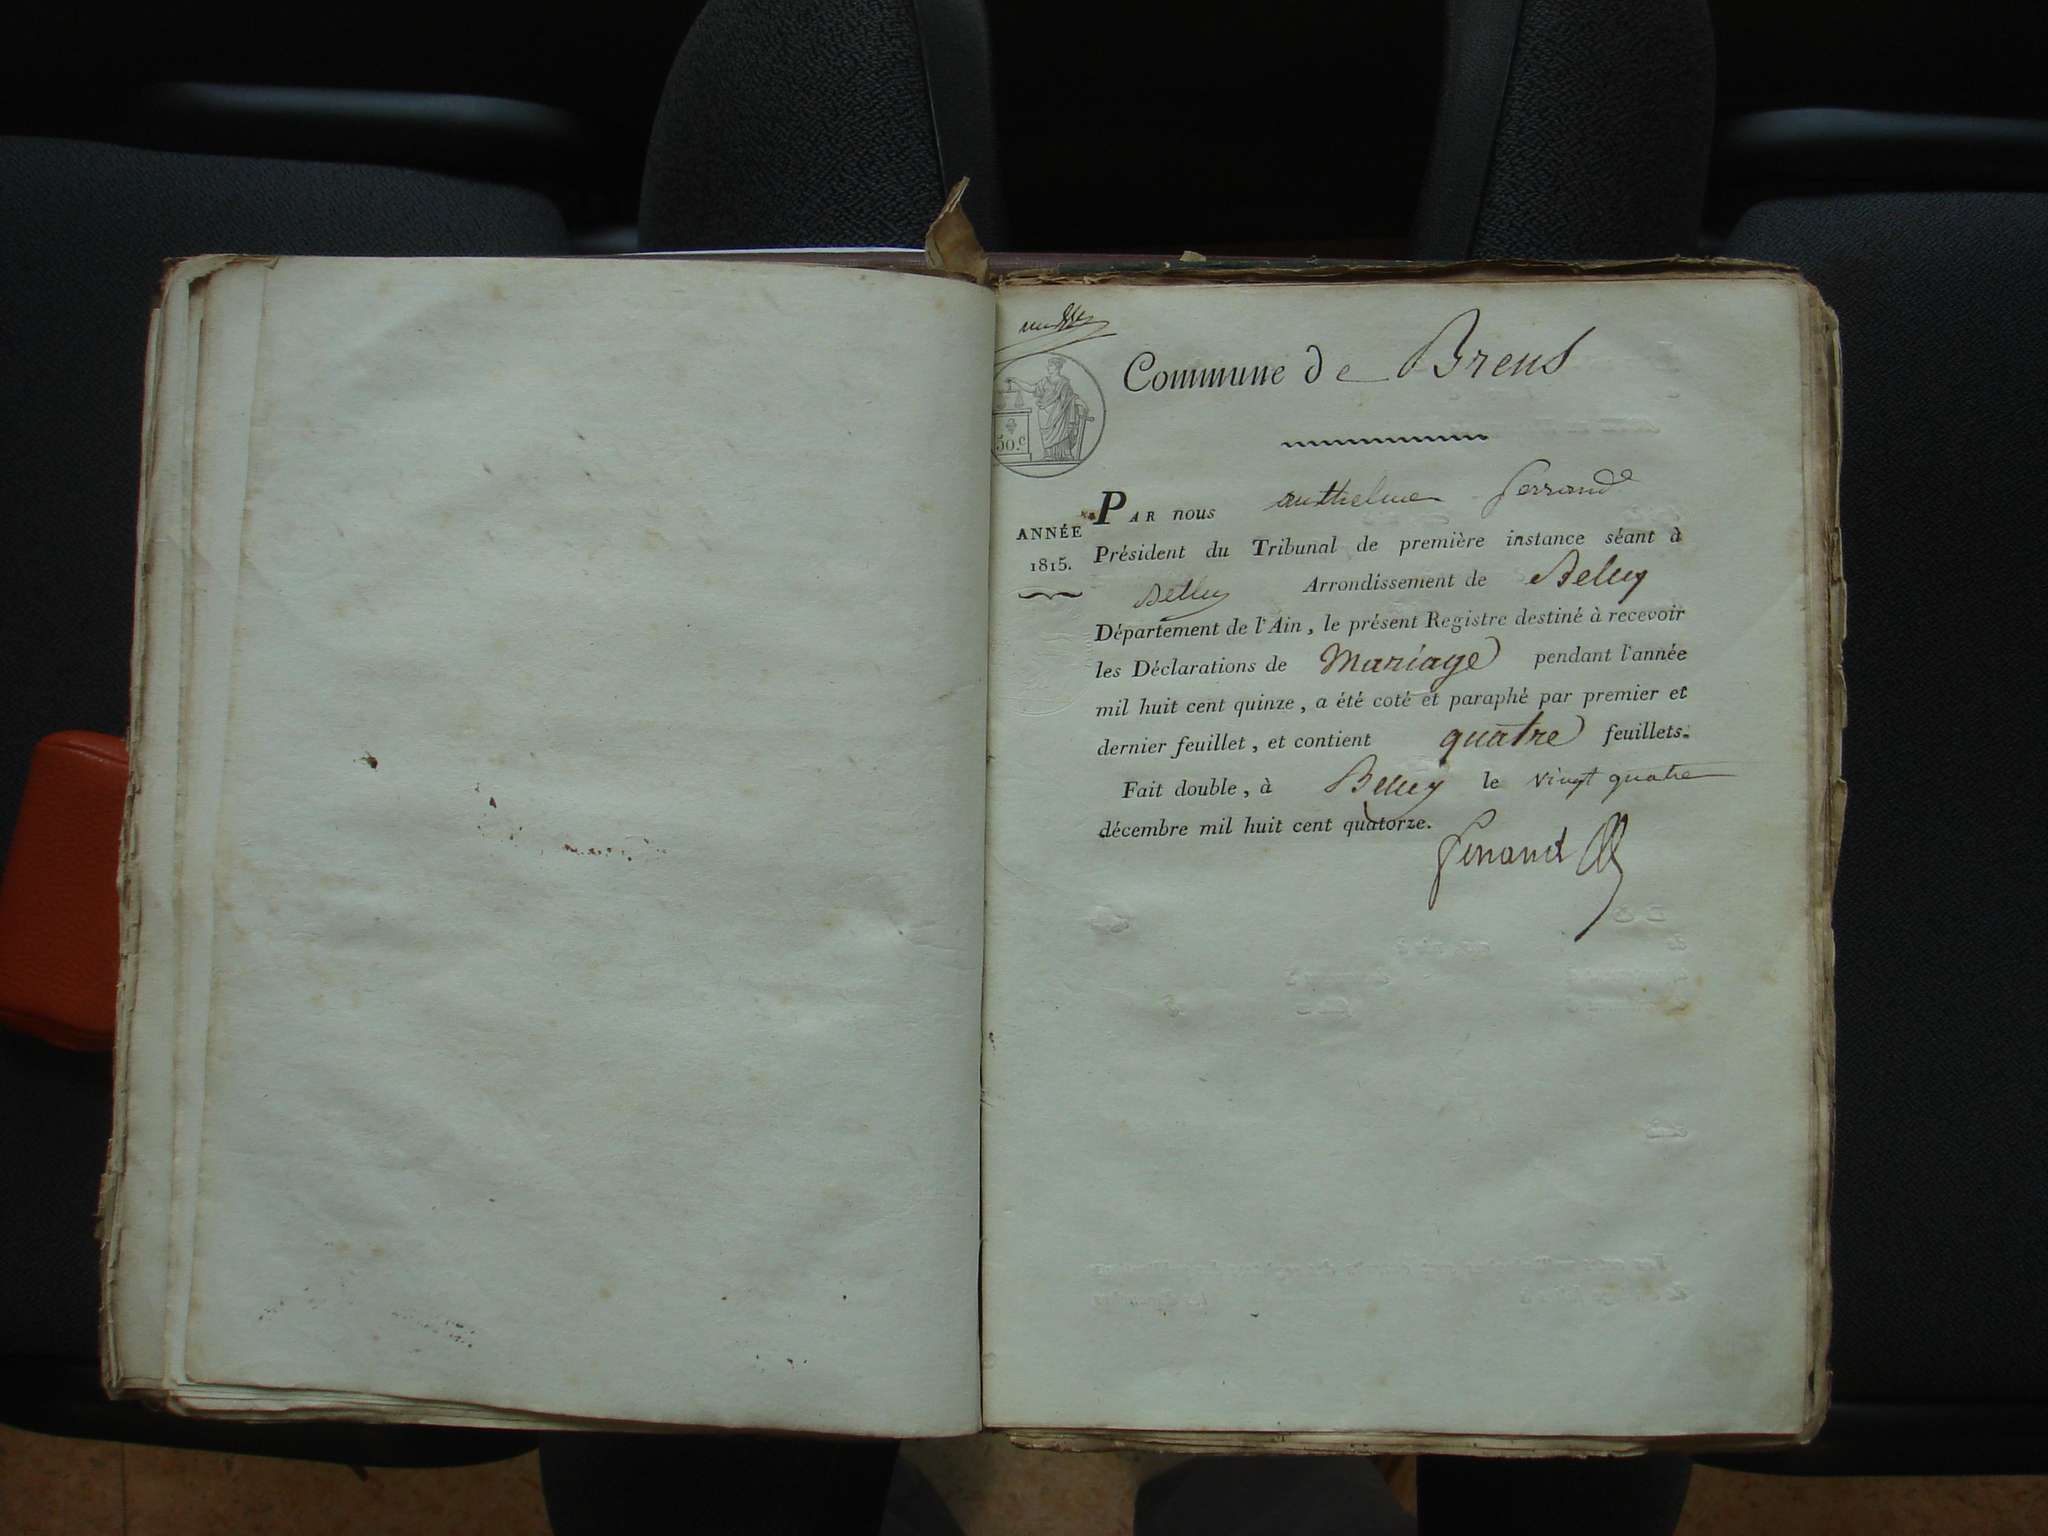 Commune de Brens
50.c
ANNÉE
1815.
PAR nous anthelme ferrand
Président du Tribunal de première instance séant à
Belley Arrondissement de Belley
Département de l'Ain, le présent Registre destiné à recevoir
les Déclarations de Mariage pendant l'année
mil huit cent quinze, a été coté et paraphé par premier et
dernier feuillet, et contient quatre feuillets.
Fait double, à Belley le vingt quatre
décembre mil huit cent quatorze.
ferrand